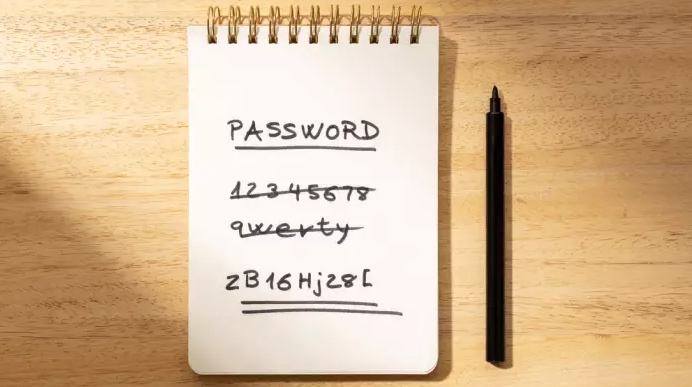 PASSWORD
12345678
qwerty
2B16Hj28[